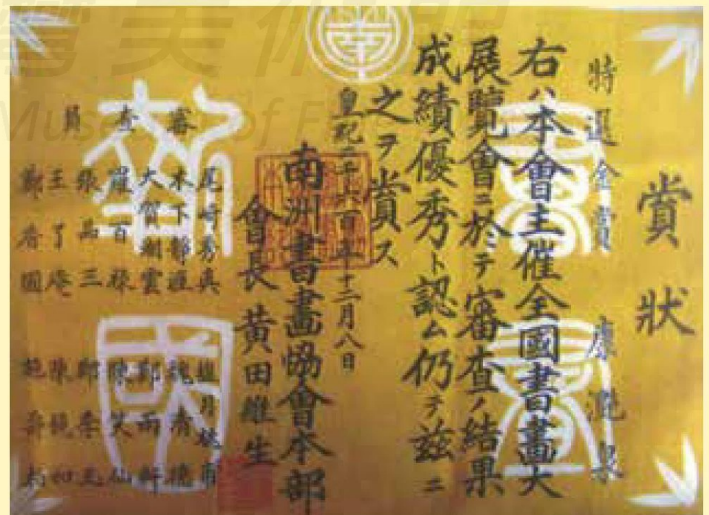 賞狀
特選金賞 康灔泉
右ハ本會主催全國書畫大
展覽會ニ於テ審查ノ結果
成績優秀ト認ム仍テ茲ニ
之ヲ賞ス
皇紀二千六百年十二月八日
南洲書畫協會本部
會長 黃田維生
審查員
尾崎秀真
木下靜涯
大賀湘雲
羅百祿
張品三
王了庵
鄭香圃
魏清德
鄭雨軒
陳笑仙
鄭季
陳鏡如